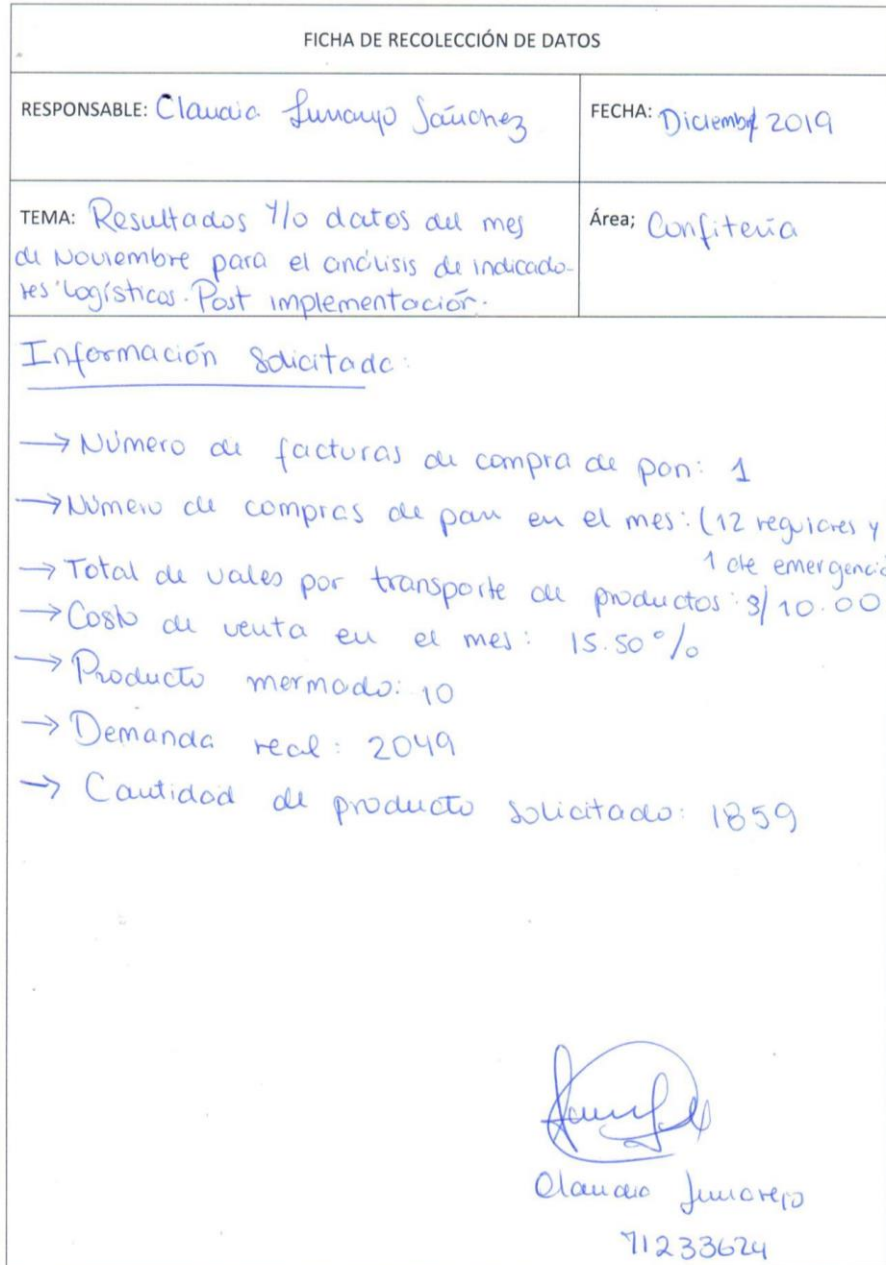 FICHA DE RECOLECCIÓN DE DATOS
RESPONSABLE: Claudia Sánchez
FECHA: Diciembre 2019
TEMA: Resultados y/o datos del mes
de Noviembre para el análisis de indicado-
res logísticos. Post implementación.
Área; Confitería
Información Solicitada:
→ Número de facturas de compra de pan: 1
→ Número de compras de pan en el mes: (12 regulares y
1 de emergencia
→ Total de vales por transporte de productos: S/ 10.00
→ Costo de venta en el mes: 15.50%
→ Producto mermado: 10
→ Demanda real: 2049
→ Cantidad de producto solicitado: 1859
Claudia
71233624